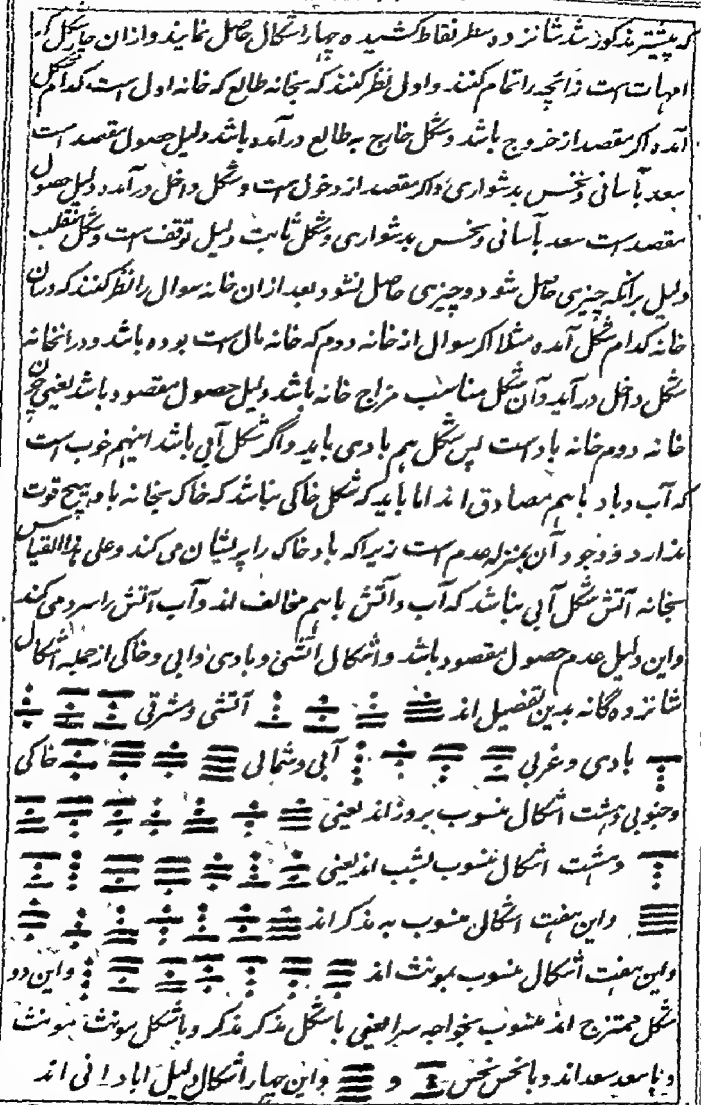 که پیشتر مذکور شد شانزده سطر نقاط کشیده چهار اشکال حاصل نمایند و ازان چار شکل که
امهات است زائچه را تمام کنند و اول نظر کنند که بخانه طالع که خانه اول است کدام شکل
آمده اگر مقصد از خروج باشد و شکل خارج به طالع درآمده باشد دلیل حصول مقصد است
سعد بآسانی و نحس بدشواری و اگر مقصد از دخول است و شکل داخل درآمد دلیل حصول
مقصد است سعد بآسانی و نحس بدشواری و شکل ثابت دلیل توقف است و شکل منقلب
دلیل برآنکه چیزی حاصل شود و چیزی حاصل نشود بعد ازان خانه سوال را نظر کنند که دران
خانه کدام شکل آمده مثلا اگر سوال از خانه دوم که خانه مال است بوده باشد و درانخانه
شکل داخل درآید و آن شکل مناسب مزاج خانه باشد دلیل حصول مقصود باشد یعنی چون
خانه دوم خانه باد است پس شکل هم بادی باید و اگر شکل آبی باشد اینهم خوب است
که آب و باد باهم مصادق اند اما باید که شکل خاکی نباشد که خاک بخانه باد هیچ قوت
ندارد و وجود آن بمنزله عدم است زیرا که باد خاک را پریشان می کند و علی هذا القیاس
بخانه آتش شکل آبی نباشد که آب و آتش باهم مخالف اند و آب آتش را سرد می کند
و این دلیل عدم حصول مقصود باشد و اشکال آتشی و بادی و آبی و خاکی از جمله اشکال
شانزده گانه بدین تفصیل اند آتشی و شرقی
بادی و غربی آبی و شمالی خاکی
و جنوبی و هشت اشکال منسوب بروز اند یعنی
و هشت اشکال منسوب بشب اند یعنی
و این هفت اشکال منسوب به مذکر اند
و این هفت اشکال منسوب بمونث اند و این دو
شکل ممتزج اند منسوب بخواجه سرا یعنی با شکل مذکر مذکر و با شکل مونث مونث
و با سعد سعد اند و با نحس نحس و و این چهار اشکال دلیل آبادانی اند